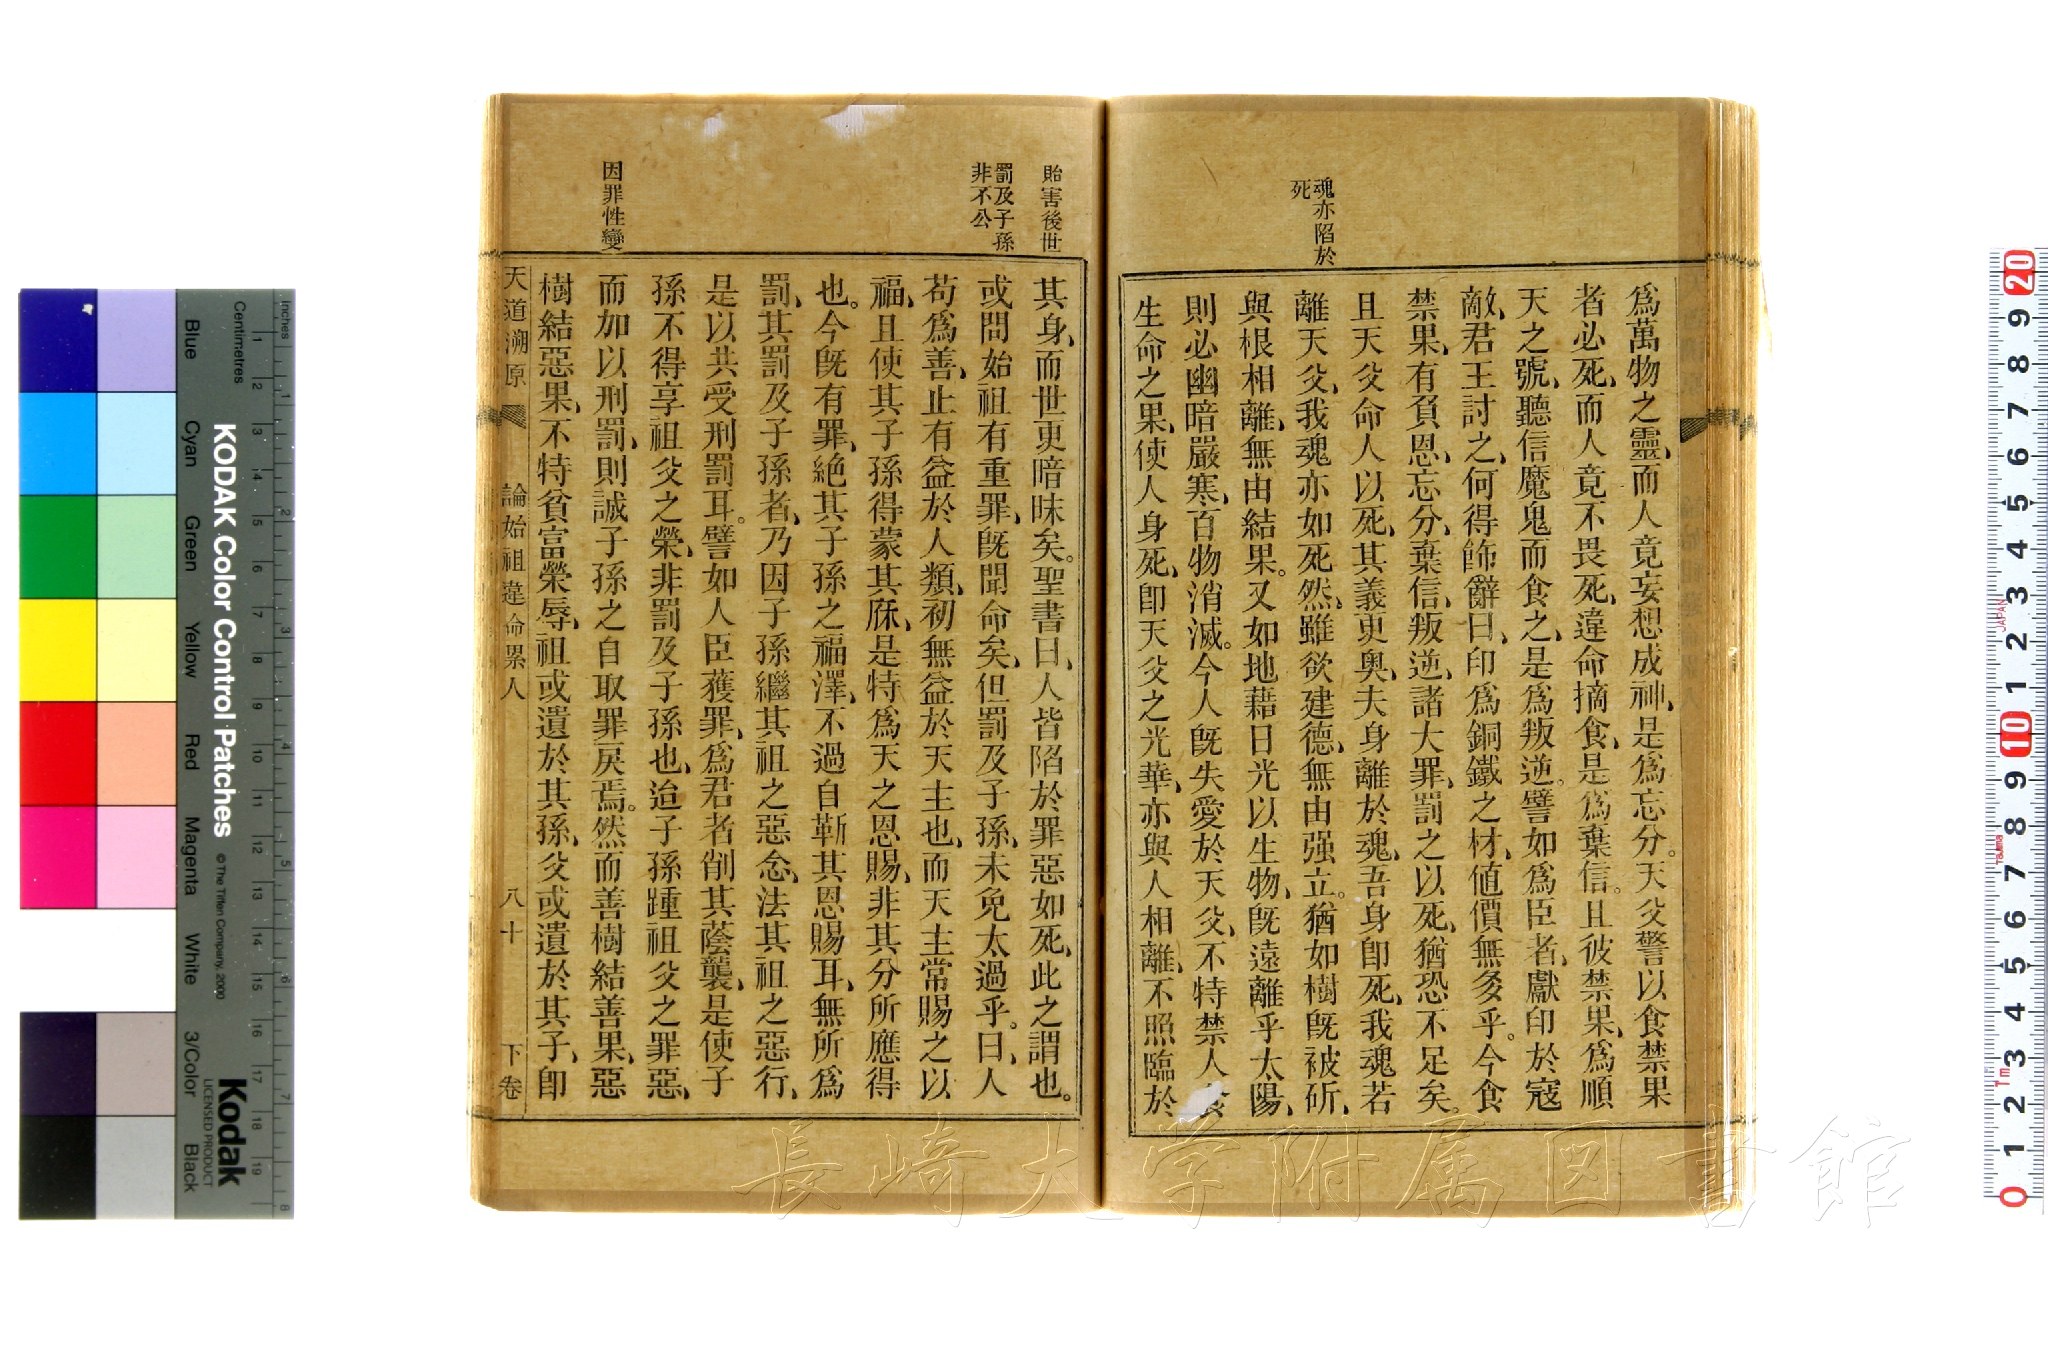 魂亦陷於
死
爲萬物之靈、而人竟妄想成神、是爲忘分。天父警以食禁果
者必死、而人竟不畏死、違命摘食、是爲棄信。且彼禁果、爲順
天之號、聽信魔鬼而食之、是爲叛逆。譬如爲臣者、獻印於寇
敵、君王討之、何得飾辭曰、印爲銅鐵之材、値價無多乎。今食
禁果、有負恩、忘分、棄信、叛逆、諸大罪、罰之以死、猶恐不足矣。
且天父命人以死、其義更奧、夫身離於魂、吾身卽死、我魂若
離天父、我魂亦如死然、雖欲建德、無由强立。猶如樹旣被斫、
與根相離、無由結果。又如地藉日光以生物、旣遠離乎太陽、
則必幽暗嚴寒、百物消滅。今人旣失愛於天父、不特禁人食
生命之果、使人身死、卽天父之光華、亦與人相離、不照臨於
貽害後世
罰及子孫
非不公
因罪性變
其身、而世更暗昧矣。聖書曰、人皆陷於罪惡如死、此之謂也。
或問始祖有重罪、旣聞命矣、但罰及子孫、未免太過乎。曰、人
苟爲善、止有益於人類、初無益於天主也、而天主常賜之以
福、且使其子孫得蒙其庥、是特爲天之恩賜、非其分所應得
也。今旣有罪、絶其子孫之福澤、不過自靳其恩賜耳、無所爲
罰、其罰及子孫者、乃因子孫繼其祖之惡念、法其祖之惡行、
是以共受刑罰耳。譬如人臣獲罪、爲君者削其蔭襲、是使子
孫不得享祖父之榮、非罰及子孫也、迨子孫踵祖父之罪惡、
而加以刑罰、則誠子孫之自取罪戾焉。然而善樹結善果、惡
樹結惡果、不特貧富榮辱、祖或遺於其孫、父或遺於其子、卽
天道溯原 論始祖違命累人 八十 下卷
KODAK Color Control Patches
© The Tiffen Company, 2000
Kodak
LICENSED PRODUCT
Inches
Centimetres
Blue
Cyan
Green
Yellow
Red
Magenta
White
3/Color
Black
JAPAN
長崎大学附属図書館